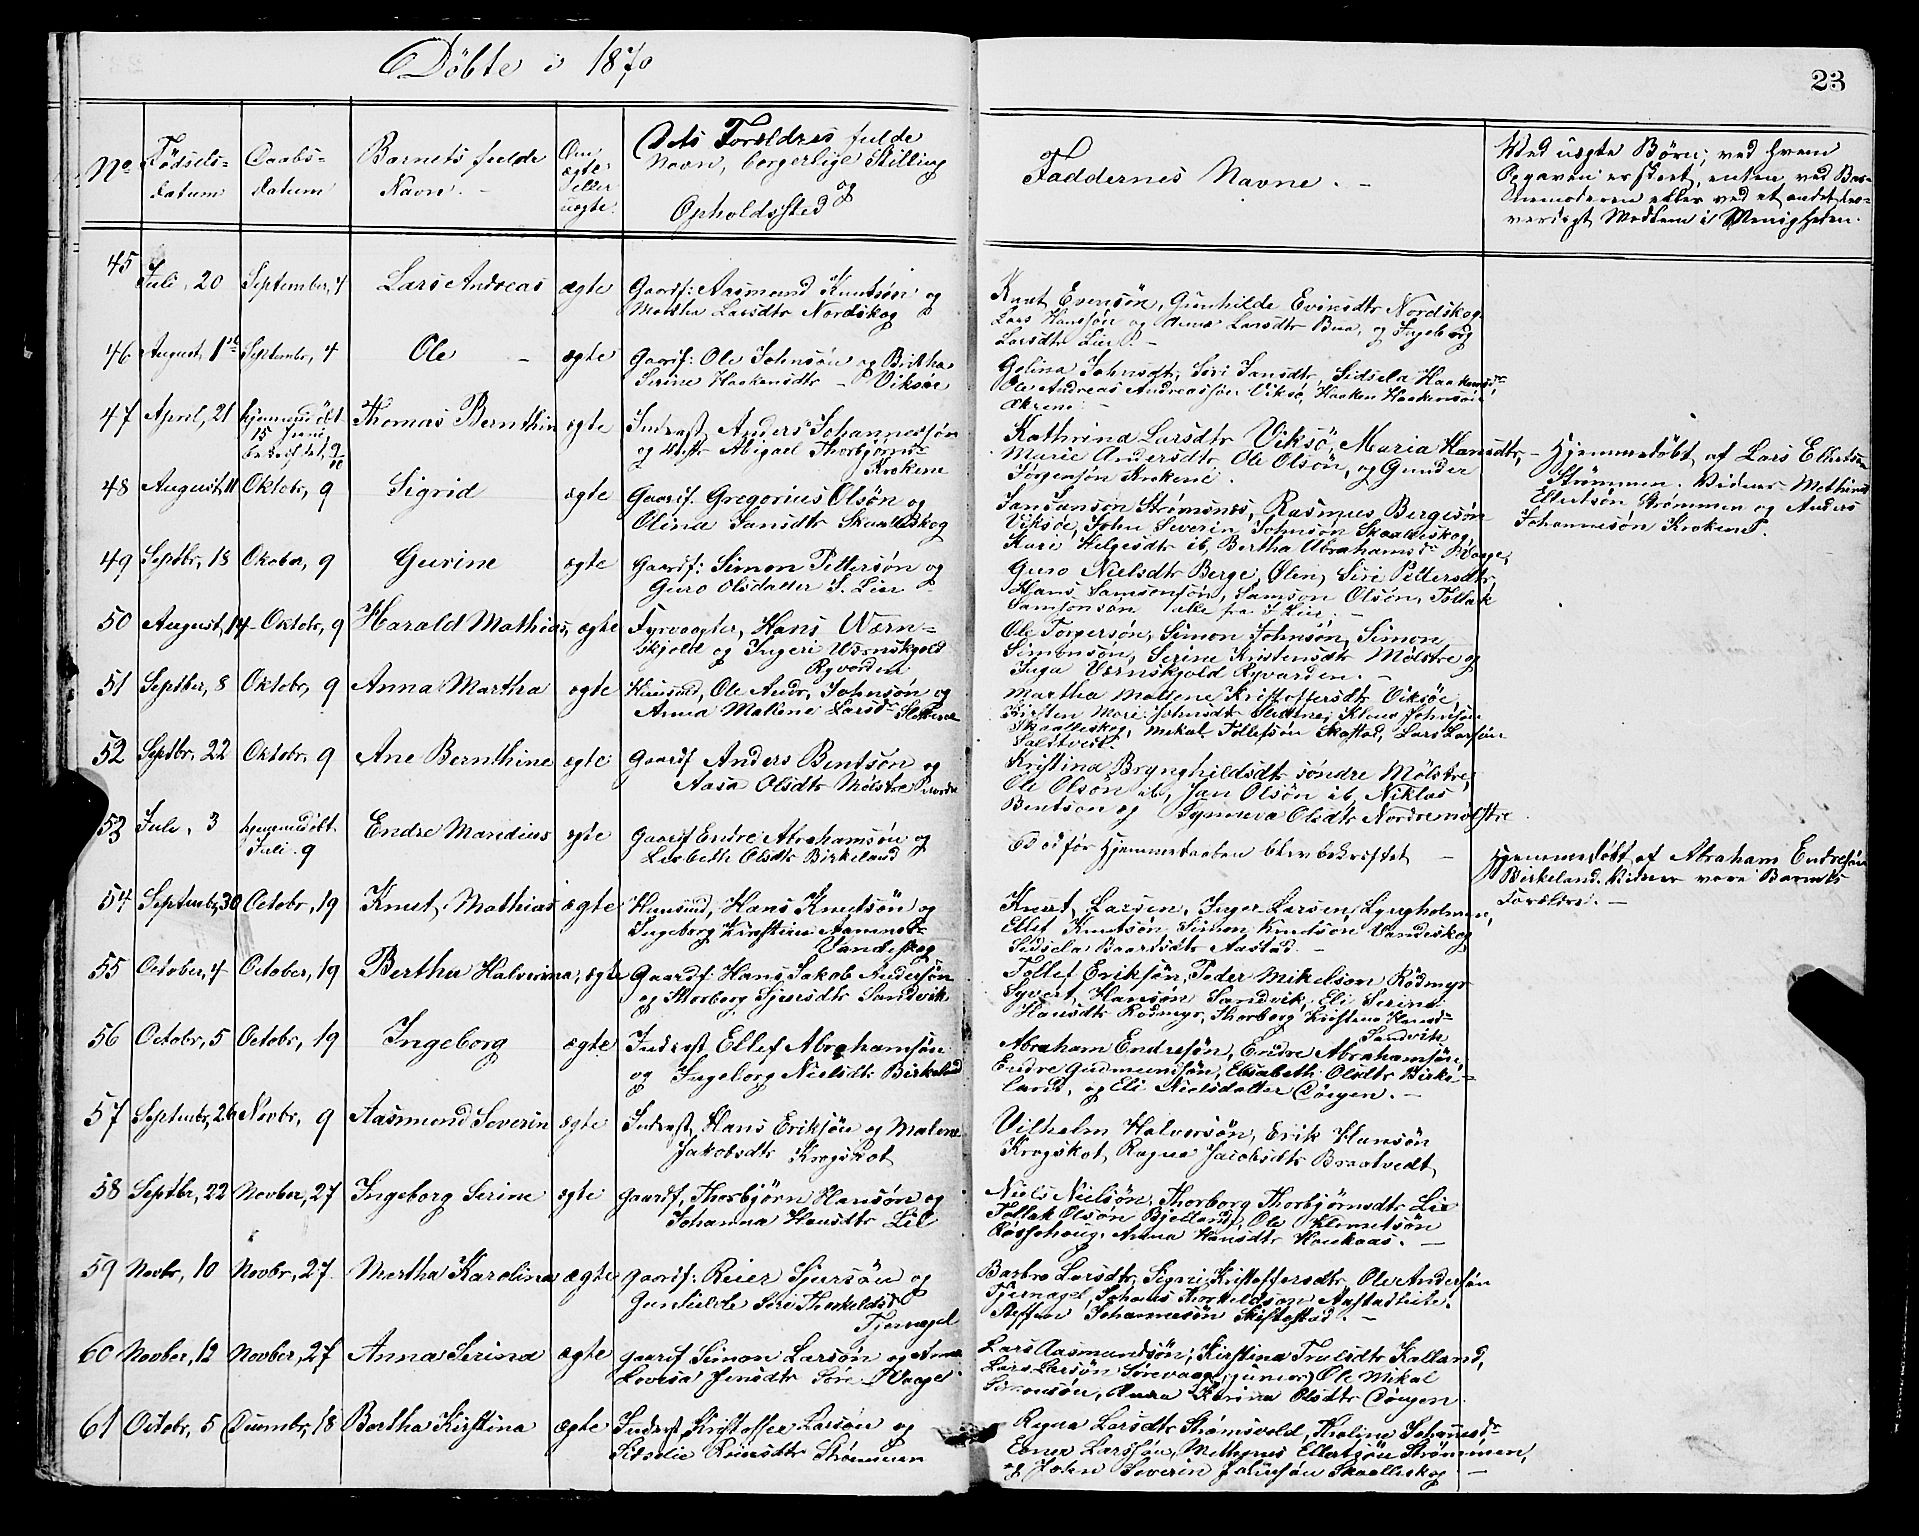 Döbte i 1870
23
No
Fødsels-
datum
Daabs-
datum
Barnets fulde
Navn. -
Om
ægte
eller
uægte.
Dets Forældres fulde
Navn, borgerlige Stilling
og
Opholdssted
Faddernes Navne. -
Ved uægte Børn; ved hvem
Opgaven er skeet, enten ved Bar-
nemoderen eller ved et andet tro-
værdigt Medlem i Menigheden.
45 Juli, 20 September, 4 Lars Andreas ægte Gaardf: Aasmund Knutsøn og
Martha Larsdtr Nordskog
Knut Evensøn, Gunhilde Eriksdtr Nordskog
Lars Hanssøn og Anna Larsdtr Bua, og Ingeborg
Larsdtr Lier. -
46 August, 1st Septembr, 4 Ole - ægte Gaardf: Ole Johnsøn og Birtha
Serine Haakensdtr - Viksøe
Golina Johnsdtr, Siri Jansdtr, Sidsela Haakensdr
Ole Andreas Andreassøn Viksø, Haaken Haakensøn
Økrene. -
47 April, 21 hjemmedöbt
15 Juni
bekræftet, 9/10 Thomas Bernthin ægte Inderst, Anders Johannessøn
og Hustr Abigael Thorbjørnsdr
Krokene
Kathrina Larsdtr Viksö, Maria Hansdtr,
Marie Andersdtr, Ole Olsön, og Gunder
Torgersøn Krokene.
- Hjemmedøbt, af Lars Ellertsøn
Strømmen. Vidner Methines
Ellertsøn Strømmen og Anders
Johannesøn Krokene.
48 August, 11 Oktobr, 9 Sigrid ægte Gaardf. Gregorius Olsøn og
Olina Jansdtr Skaaleskog
Jan Jansøn Strømsnes, Rasmus Bergesøn
Viksøe, John Severin Johnsøn Skaaleskog,
Kari Helgesdtr ib, Bertha Abrahamsdr Waage,
49 Septbr, 18 Okober, 9 Gurine ægte Gaardf: Simon Pettersøn og
Guro Olsdatter S. Lier -
Guro Nielsdtr Berge, Ølen, Siri Pettersdtr,
Hans Samsonsøn, Samson Olsøn, Tollak
Samsonsøn alle fra S Lier. -
50 August, 14 Oktobr, 9 Harald Mathias, ægte Fyrvogter, Hans Wern-
skjold og Ingeri Wernskjold
Ryvarden
Ole Torgersøn, Simon Johnsøn, Simon
Simonsøn, Serine Kristensdtr Mølstre og
Inga Vernskjold Ryvarden. -
51 Septber, 8 Oktobr, 9 Anna Martha ægte Huusmd, Ole Andr. Johnsøn og
Anna Malene Larsdr
Martha Mallene Kristoffersdtr Viksøe,
Kirsten Mari Johnsdtr, Klaus Johnsøn
Skaalleskog, Mikal Tollefsøn Skastad, Lars Larsøn
Saltvedt.
52 Septbr, 22 Oktobr, 9 Ane Bernthine ægte Gaardf Anders Bentsøn og
Aasa Olsdtr Mølstre nordre
Kristina Brynghildsdtr søndre Mölstre,
Ole Olsøn ib, Jan Olsøn ib, Niklas
Bentson og Synneva Olsdtr Nordremølstre
53 Juli, 3 hjemmedöbt
Juli 9 Endre Mandius ægte Gaardf Endre Abrahamsøn og
Lisbeth Olsdtr Birkeland
Död för Hjemmedaaben blev bekræftet -
Hjemmedøbt af Abraham Endresøn
Birkeland. Vidner vare Barnets
Forældre. -
54 Septembr, 30 Octobr, 19 Knut Mathias ægte Huusmd, Hans Knutsøn og
Ingeborg Kirstine Aamundsdr
Vandeskog
Knut Larsen, Inger Larsen Lyngholmen,
Ellef Knutsøn, Simon Knudsøn Vandeskog
Sidsela Baardsdtr Aastad -
55 October, 4 October, 19 Bertha Halverina, ægte Gaardf. Hans Jakob Andersøn
og Thorborg Sjursdtr Sandvik
Tollef Eriksøn, Peder Mikelson Rødmyr
Syvert, Hansøn Sandvik, Eli Serina
Hansdtr Rødmyr, Thorborg Kristina Hansdr
Sandvik
56 Octobr, 5 Octobr, 19 Ingeborg ægte Inderst Ellef Abrahamsøn
og Ingeborg Nielsdtr Birkeland
Abraham Endresøn, Endre Abrahamsøn,
Endre Gudmunsøn, Elisabeth Olsdtr Birke-
land, og Eli Nielsdatter Döigen. -
57 Septembr, 26 Novbr, 9 Aasmund Severin ægte Inderst, Hans Eriksøn og Malene
Jakobsdtr Kragskot
Vilhelm Halversøn, Erik Hansøn
Kragskot, Ragna Jacobsdtr Braatvedt
58 Septbr, 22 Novber, 27 Ingeborg Serine ægte gaardf, Thorbjørn Hansøn og
Johanna Hansdtr Lie
Niels Nielsøn, Thorborg Thorbjørnsdtr Lie
Tollak Olsøn Bjelland, Ole Klemetsön
Røssehoug. Anna Hansdtr Haukaas. -
59 Novbr, 10 Novbr, 27 Martha Karolina ægte gaardf: Reier Sjursøn og
Gunhilde Siri Thorkildsd
Tjernagel
Barbro Larsdtr, Signi Kristoffersdtr, Ole Andersøn
Tjernagel, Johans Thorkildson Aastadleite,
Steffen Johannesøn Skistostad. -
60 Novber, 12 Novber, 27 Anna Serina ægte gaardf Simon Larsøn og Anna
Lovisa Jensdtr Søre Waage
Lars Aasmundsøn, Kirstina Trulsdtr Kalland,
Lars Larsøn Sørevaag (junior), Ole Mikal
Simonsøn, Anna Karina Olsdtr Döigen.
61 Octobr, 5 Decembr, 18 Bertha Kirstina ægte Inderst Kristoffer Larsøn og
Sidselie Reiersdtr Strømmen
Ragna Larsdtr Strømsvold, Thaline Johannesdr
Larssøn, Methynes Ellertsøn Strømmen,
og John Severin Johnsøn Skaalleskog. -